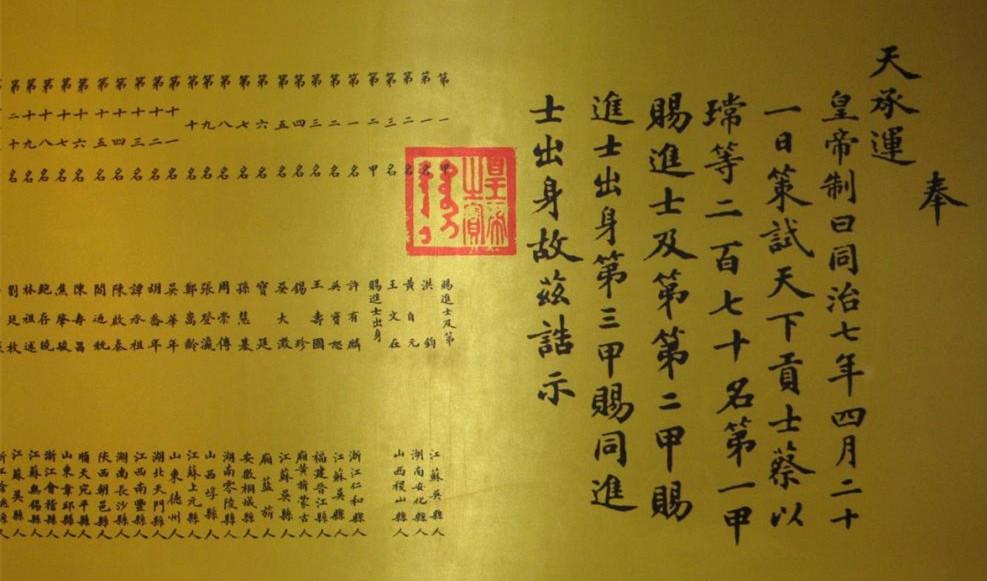 奉
天承運
皇帝制曰同治七年四月二十
一日策試天下貢士蔡以
瑺等二百七十名第一甲
賜進士及第第二甲賜
進士出身第三甲賜同進
士出身故茲誥示
皇帝之寶
第一甲 賜進士及第
第一名 洪鈞 江蘇吳縣人
第二名 黃自元 湖南安化縣人
第三名 王文在 山西稷山縣人
第二甲 賜進士出身
第一名 許有麟 浙江仁和縣人
第二名 吳寶恕 江蘇吳縣人
第三名 王壽國 福建晉江縣人
第四名 錫珍 廂黃旗蒙古
第五名 吳大澂 江蘇吳縣人
第六名 寶廷 廂藍旗
第七名 孫慧基 安徽桐城縣人
第八名 周崇傅 湖南零陵縣人
第九名 張登瀛 山西崞縣人
第十名 鄭嵩齡 江蘇上元縣人
第十一名 吳華年 山東德州人
第十二名 胡喬年 湖北天門縣人
第十三名 譚承祖 江西南豐縣人
第十四名 陳啟泰 湖南長沙縣人
第十五名 閻迺竬 陝西朝邑縣人
第十六名 陳壽昌 順天宛平縣人
第十七名 焦肇駿 山東章邱縣人
第十八名 鮑存曉 浙江會稽縣人
第十九名 林述 江蘇無錫縣人
第二十名 劉廷枚 江蘇吳縣人